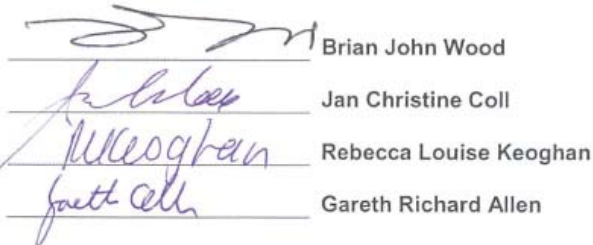 Brian John Wood
Jan Christine Coll
RKeoghan Rebecca Louise Keoghan
Gareth Allen Gareth Richard Allen